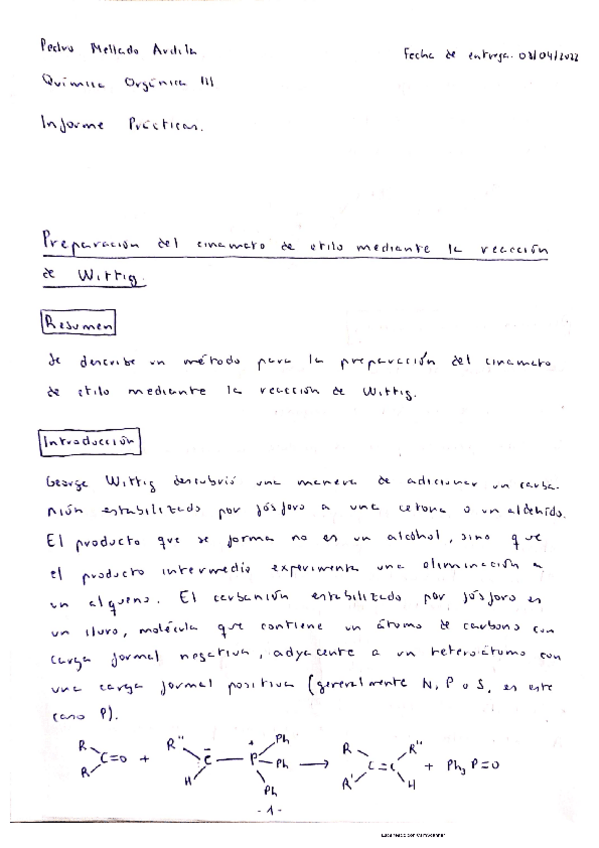 Pedro Mellado Ardila
Fecha de entrega. 08/04/2022
Química Orgánica III
Informe Prácticas.
Preparación del cinamato de etilo mediante la reacción
de Wittig.
Resumen
Se describe un método para la preparación del cinamato
de etilo mediante la reacción de Wittig.
Introducción
George Wittig descubrió una manera de adicionar un carba-
nión estabilizado por fósforo a una cetona o un aldehído.
El producto que se forma no es un alcohol, sino que
el producto intermedio experimenta una eliminación a
un alqueno. El carbanión estabilizado por fósforo es
un iluro, molécula que contiene un átomo de carbono con
carga formal negativa, adyacente a un heteroátomo con
una carga formal positiva (generalmente N, P o S, en este
caso P).
R R C=O + R'' H C̄ — P⁺ Ph Ph Ph → R R' C=C R'' H + Ph₃P=O
-1-